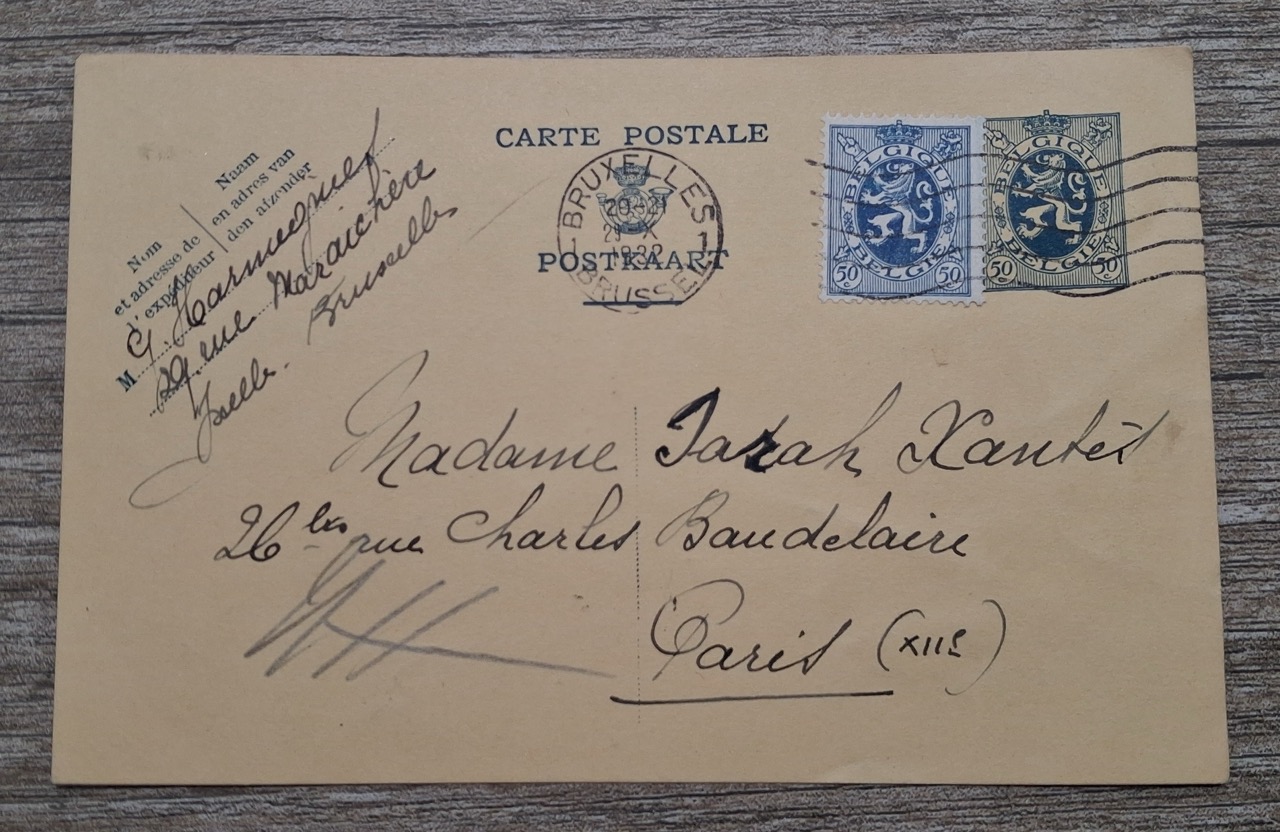 CARTE POSTALE
POSTKAART
Nom
et adresse de
l'expéditeur
Naam
en adres van
den afzender
M G. Harmegnies
29 rue Maraichère
Bruxelles
BRUXELLES 1
20-21
X
BRUSSEL
BELGIQUE
BELGIË
50 c 50 c
BELGIQUE
BELGIË
50 c 50 c
Madame Sarah Xantès
26 bis rue Charles Baudelaire
Paris (XIIe)